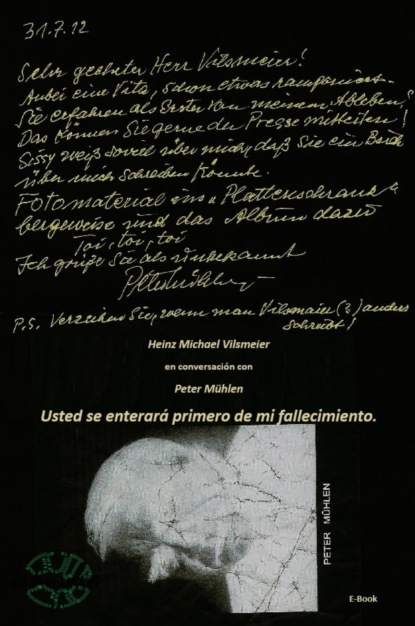 31.7.12
Sehr geehrter Herr Vilsmeier!
Anbei eine Vita, schon etwas ramponiert.
Sie erfahren als Erster von meinem Ableben,
Das können Sie gerne der Presse mitteilen!
Sissy weiß soviel über mich, daß Sie ein Buch
über mich schreiben könnte.
Fotomaterial ins "Plattenschrank"
bergeweise und das Album dazu
Toi, toi, toi
Ich grüße Sie als unbekannt
P.S. Verzeihen Sie, wenn man Vilsmaier (?) anders
schreibt!
Heinz Michael Vilsmeier
en conversación con
Peter Mühlen
Usted se enterará primero de mi fallecimiento.
PETER MÜHLEN
E-Book